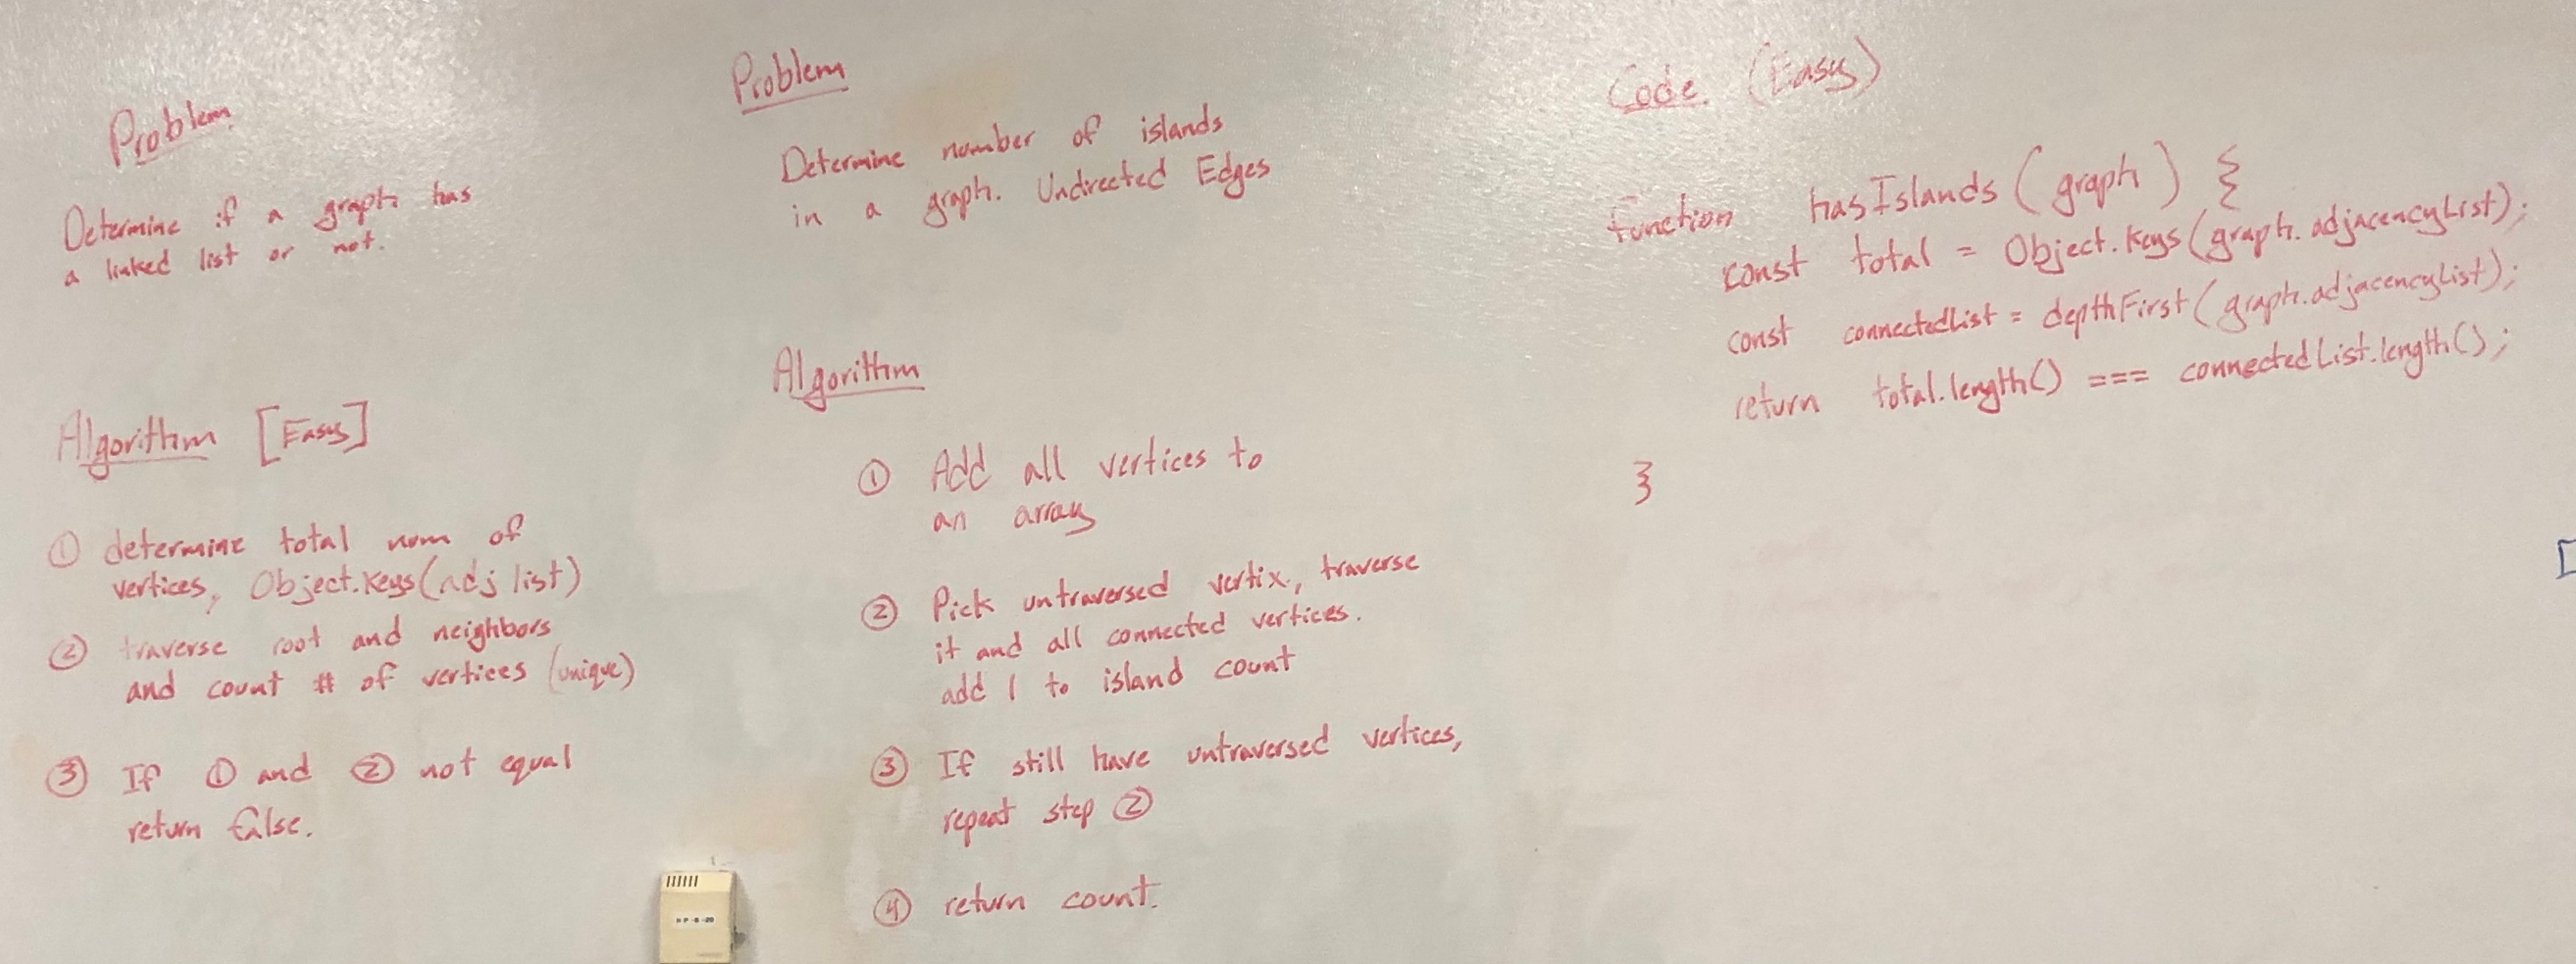 Problem
Determine if a graph has
a linked list or not.
Algorithm [Easy]
① determine total num of
vertices, Object.keys(adj list)
② traverse root and neighbors
and count # of vertices (unique)
③ If ① and ② not equal
return false.
Problem
Determine number of islands
in a graph. Undirected Edges
Algorithm
① Add all vertices to
an array
② Pick untraversed vertix, traverse
it and all connected vertices.
add 1 to island count
③ If still have untraversed vertices,
repeat step ②
④ return count.
Code (Easy)
function hasIslands (graph) {
const total = Object.keys(graph.adjacencyList);
const connectedList = depthFirst(graph.adjacencyList);
return total.length() === connectedList.length();
}